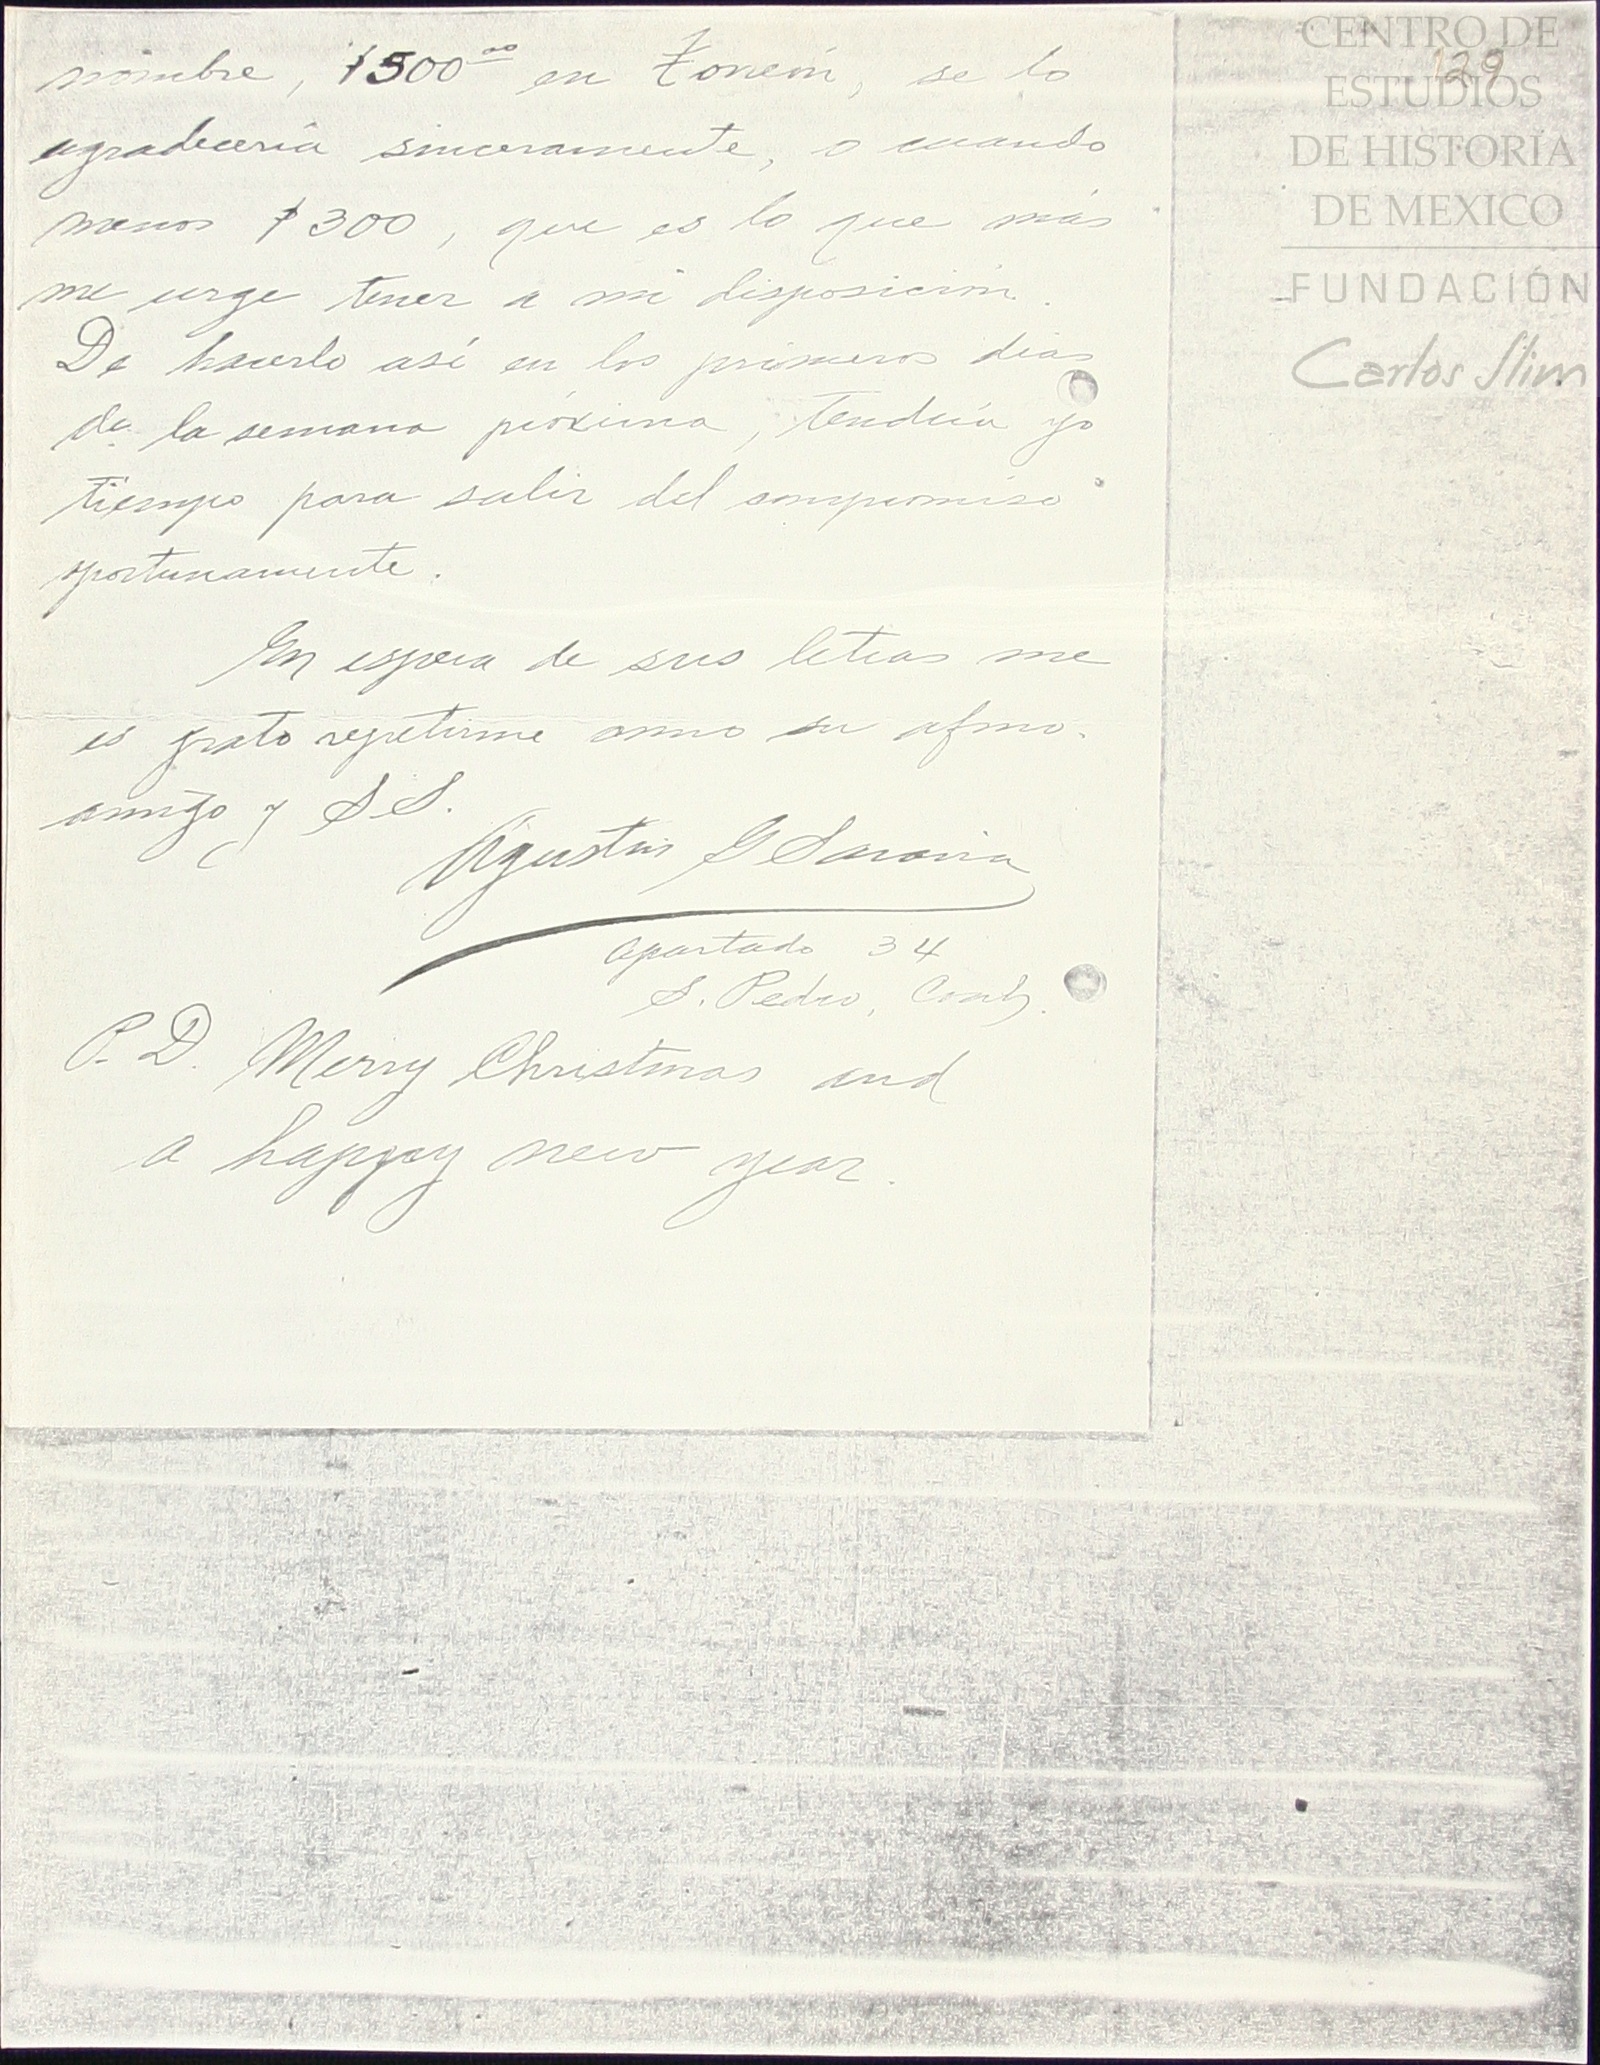 nombre, $500.00 en Torreón, se lo
agradecería sinceramente, o cuando
menos $300, que es lo que más
me urge tener a mi disposición.
De hacerlo así en los primeros días
de la semana próxima, tendría yo
tiempo para salir del compromiso
oportunamente.
En espera de sus letras me
es grato repetirme como su afmo.
amigo y S.S.
Agustín G Saravia
Apartado 34
S. Pedro, Coah.
P.D. Merry Christmas and
a happy new year.
129
CENTRO DE
ESTUDIOS
DE HISTORIA
DE MEXICO
FUNDACIÓN
Carlos Slim